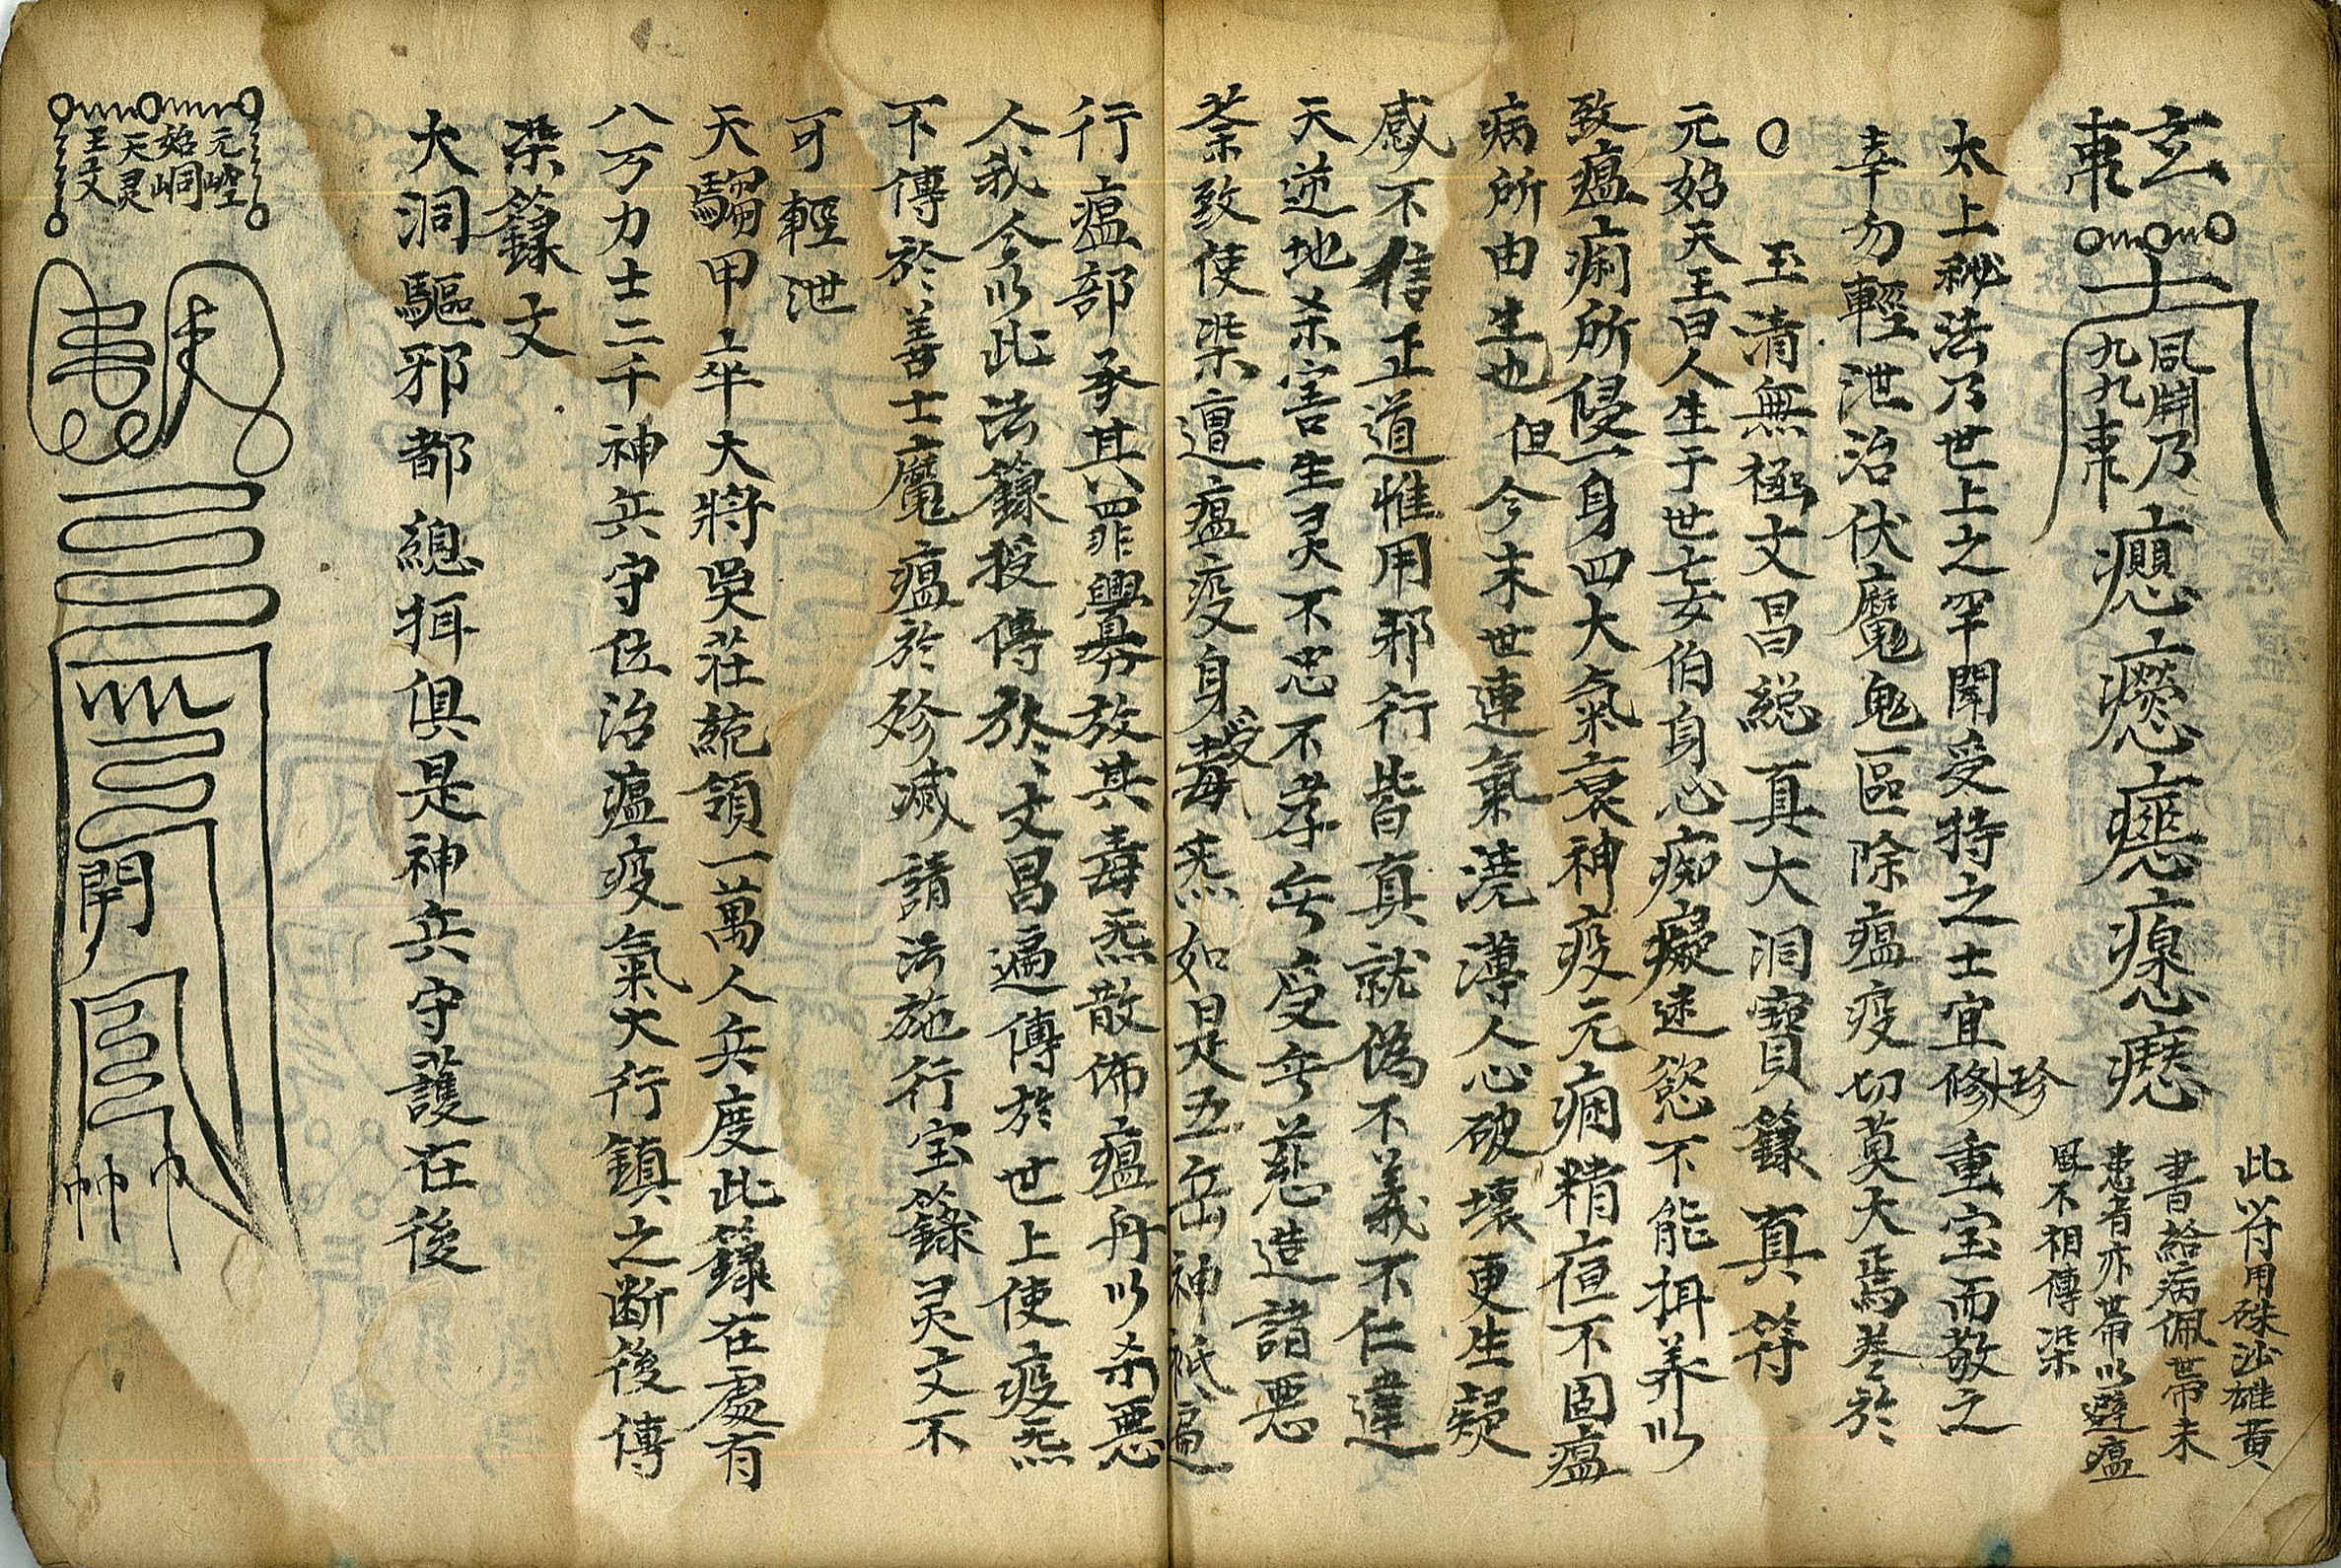 玄
東
風開乃
九九東
此符用硃沙雄黃
書給病佩帶未
患者亦帶以避瘟
風不相傳染
太上秘法乃世上之罕聞受持之士宜修珍重宝而敬之
幸勿輕泄治伏魔鬼區除瘟疫切莫大焉叁於
〇玉清無極文昌総真大洞寶籙真符
元始天王曰人生于世七女伯身心痴癡迷慾不能搑养以
致瘟痢所侵一身四大氣衰神疫元痈精疸不固瘟
病所由生也但今末世連氣澆薄人心破壞更生疑
惑不信正道惟用邪行皆真就偽不義不仁違
天逆地杀害生灵不忠不孝旡受旡慈造諸悪
業致使染遭瘟疫身受毒炁如是五岳神祇遍
行瘟部承其罪與男放其毒炁散佈瘟丹以杀悪
人我今以此法籙授傳於文昌遍傳於世上使疫炁
不傳於善士魔瘟於殄滅請法施行宝籙灵文不
可輕泄
天騶甲卒大將吳莊統領一萬人兵度此籙在處有
八万力士二千神兵守位治瘟疫氣大行鎮之断後傳
染籙文
大洞驅邪都總搑俱是神兵守護在後
元崆
始峒
天灵
王文
開